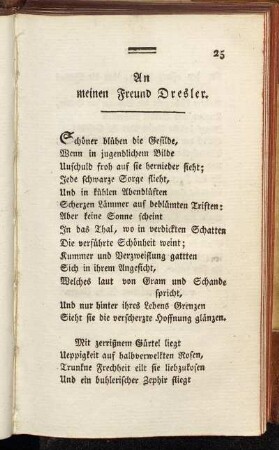 25
An
meinen Freund Dresler.
Schöner blühen die Gefilde,
Wenn in jugendlichem Bilde
Unschuld froh auf sie hernieder sieht;
Jede schwarze Sorge flieht,
Und in kühlen Abendlüften
Scherzen Lämmer auf beblümten Triften;
Aber keine Sonne scheint
In das Thal, wo in verdickten Schatten
Die verführte Schönheit weint;
Kummer und Verzweiflung gattten
Sich in ihrem Angesicht,
Welches laut von Gram und Schande
spricht,
Und nur hinter ihres Lebens Grenzen
Sieht sie die verscherzte Hoffnung glänzen.
Mit zerrißnem Gürtel liegt
Ueppigkeit auf halbverwelkten Rosen,
Trunkne Frechheit eilt sie liebzukosen
Und ein buhlerischer Zephir fliegt